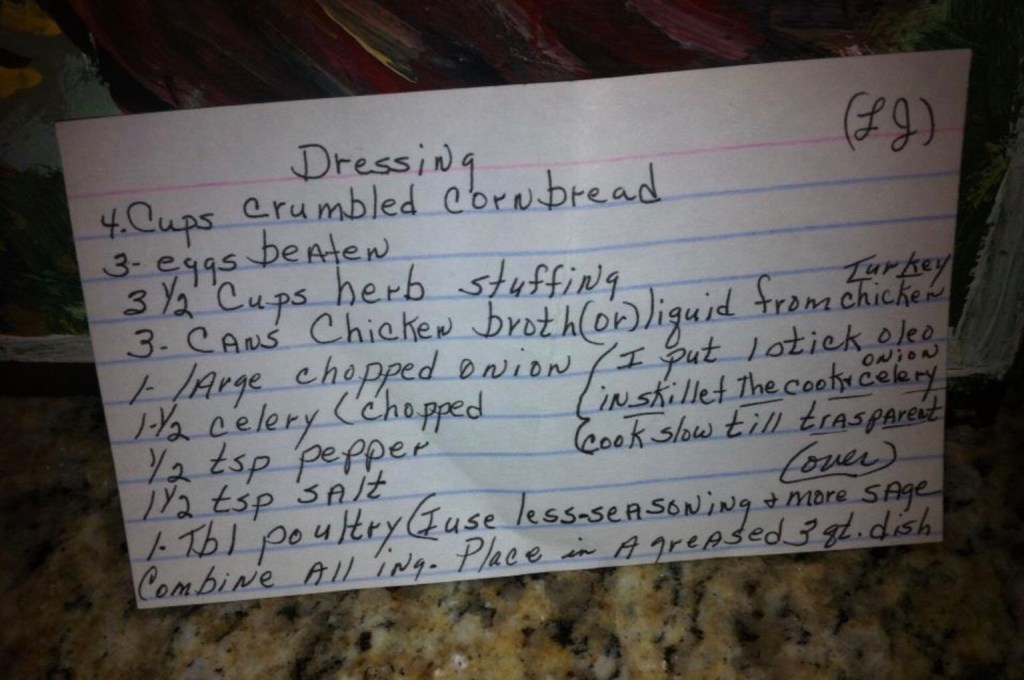 (LJ)
Dressing
4. Cups crumbled Cornbread
3- eggs beaten
3 1/2 Cups herb stuffing
3- Cans Chicken broth (or) liquid from chicken Turkey
1- large chopped onion
1-1/2 celery (chopped
(I put 1 stick oleo
in skillet The cook celery onion
cook slow till trasparent
1/2 tsp pepper
(over)
1 1/2 tsp salt
1- Tbl poultry (I use less-seasoning & more sage
Combine All ing. Place in A greased 3 qt. dish